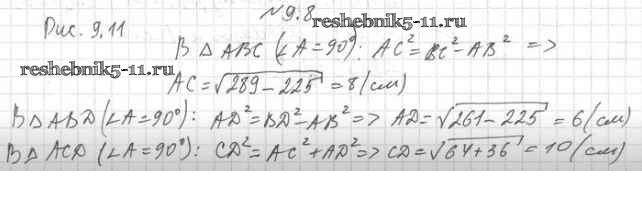 №9.8
reshebnik5-11.ru
Рис. 9.11
В △ ABC (∠A=90°): AC²=BC²-AB² =>
reshebnik5-11.ru
AC=√289-225=8(см)
В △ ABD (∠A=90°): AD²=BD²-AB² => AD=√261-225=6(см)
В △ ACD (∠A=90°): CD²=AC²+AD² => CD=√64+36=10(см)